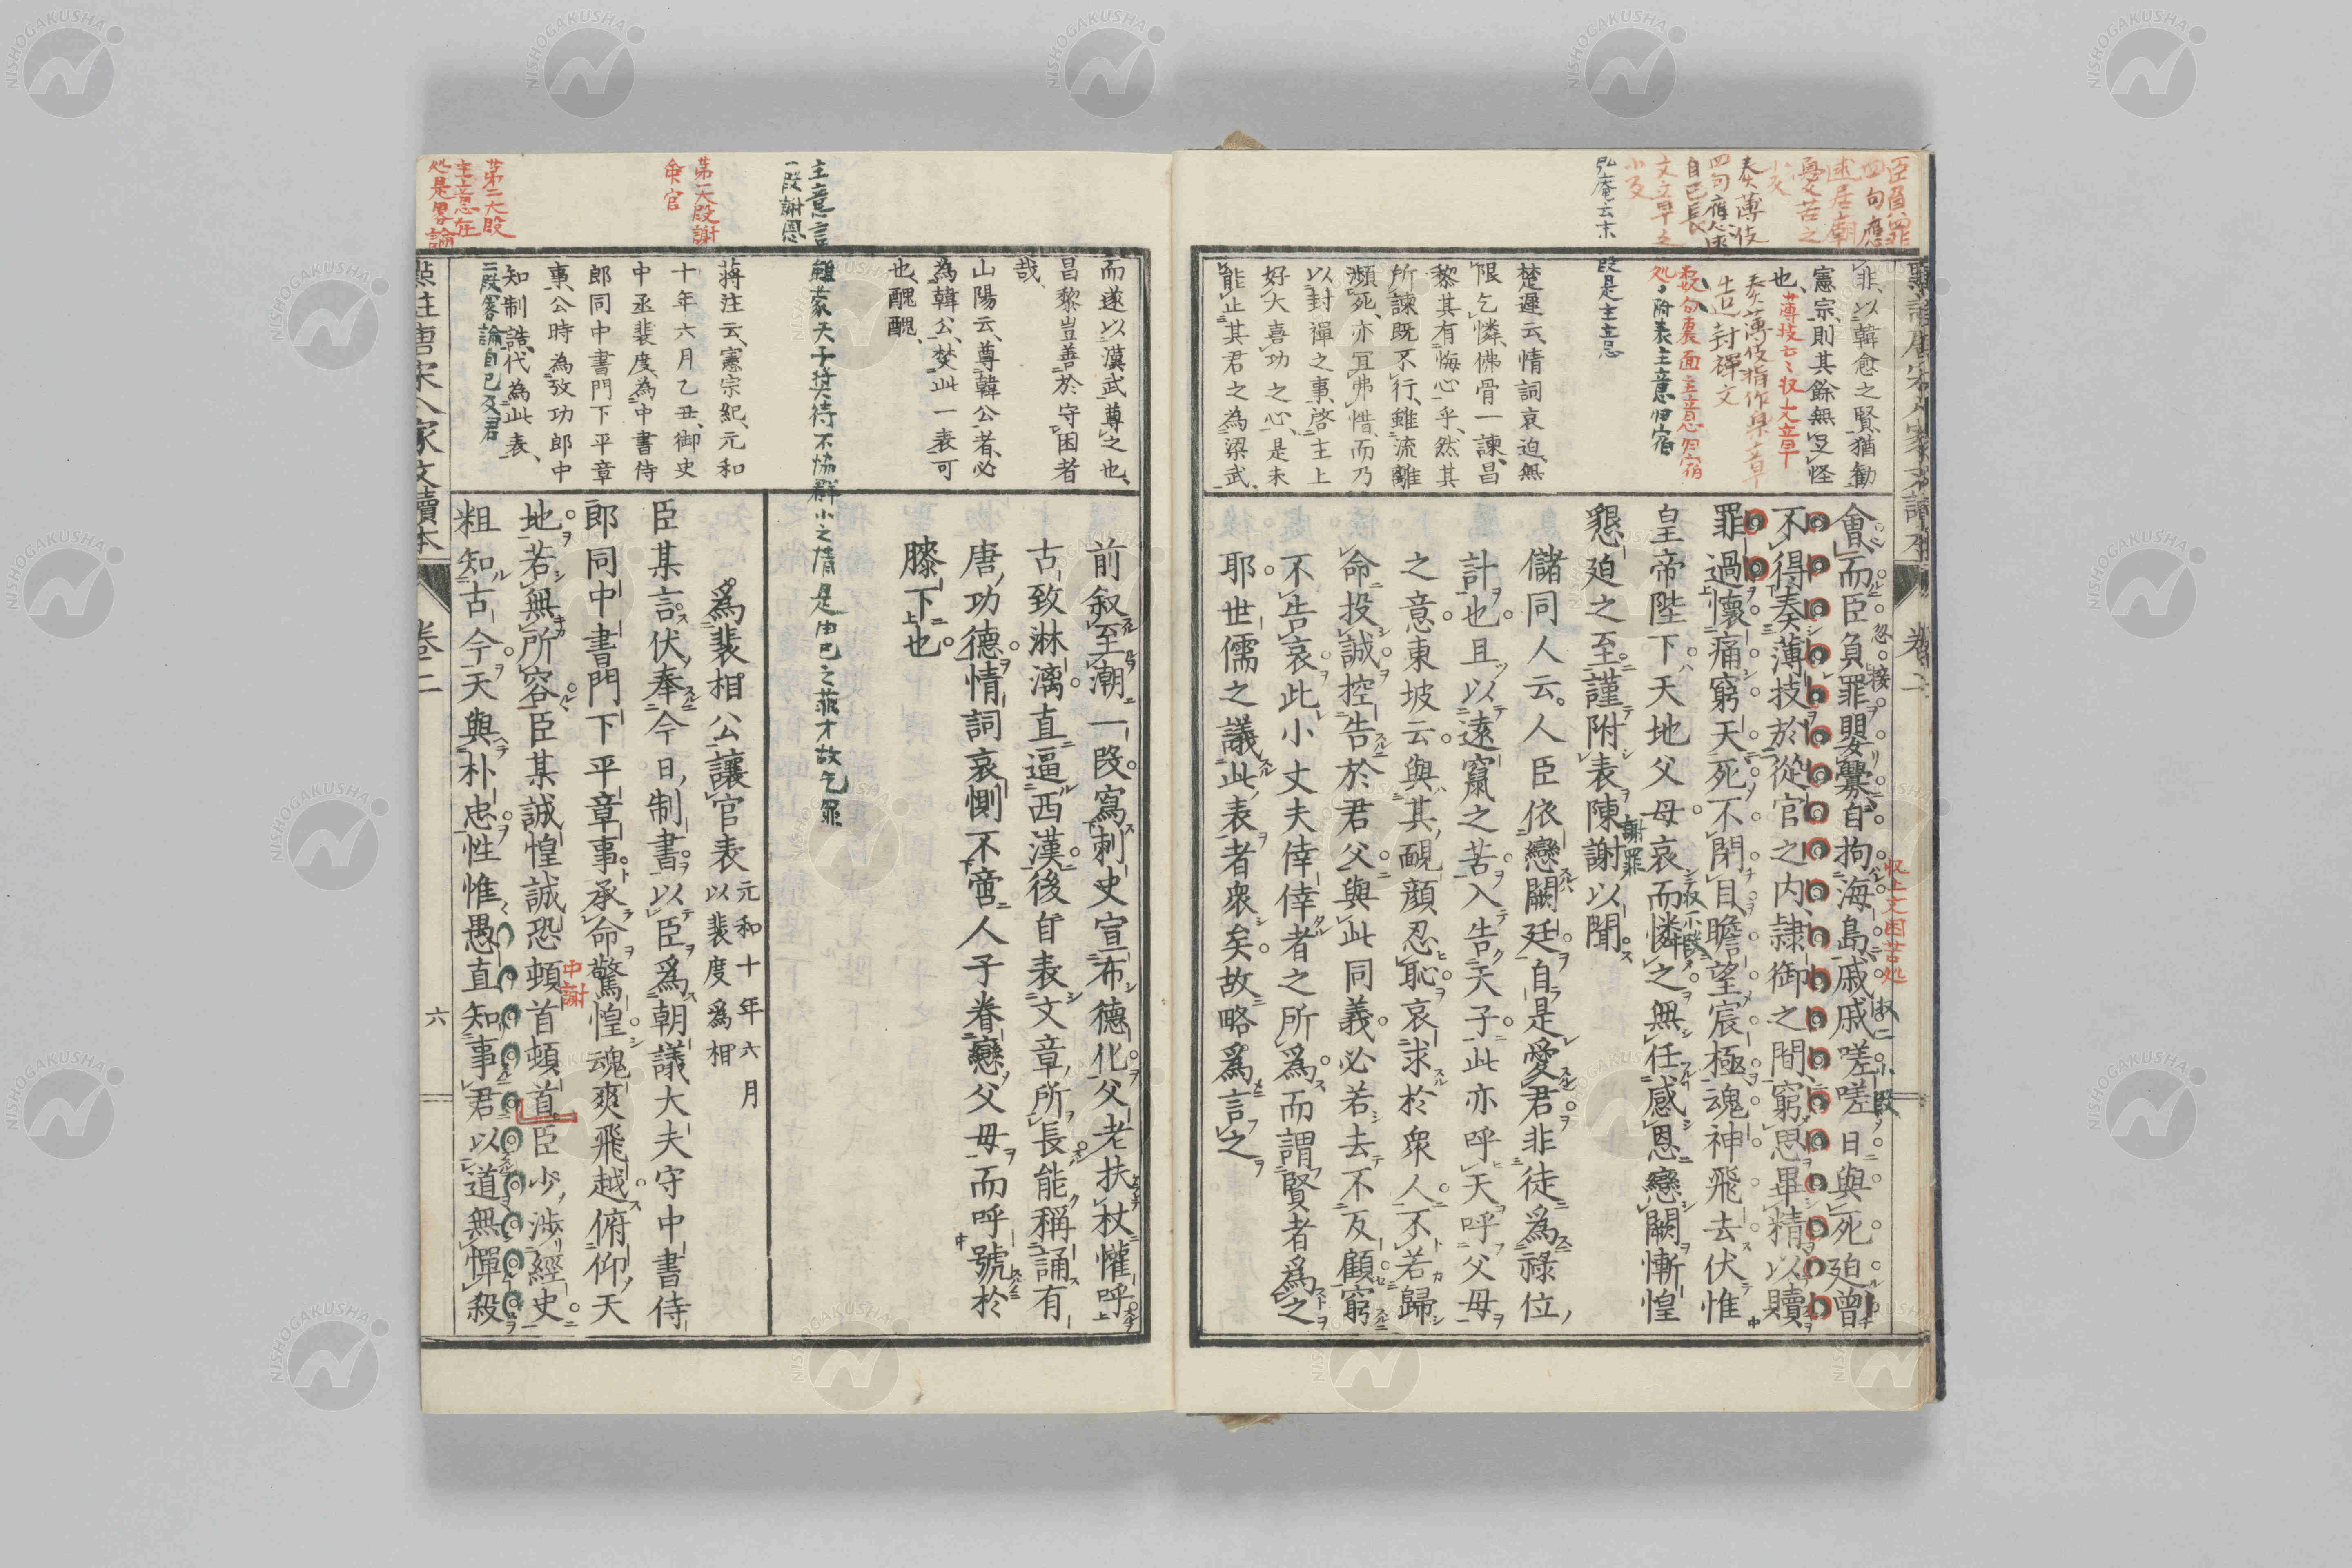 會而臣負罪嬰釁自拘海島戚戚嗟嗟日與死迫曾
不得奏薄技於從官之内隷御之間窮思畢精以贖
罪過懷痛窮天死不閉目瞻望宸極魂神飛去伏惟
皇帝陛下天地父母哀而憐之無任感恩戀闕慚惶
懇迫之至謹附表陳謝以聞
儲同人云人臣依戀闕廷自是愛君非徒爲祿位
計也且以遠竄之苦入告天子此亦呼天呼父母
之意東坡云與其靦顔忍恥哀求於衆人不若歸
命投誠控告於君父與此同義必若去不反顧窮
不告哀此小丈夫倖倖者之所爲而謂賢者爲之
耶世儒之議此表者衆矣故略爲言之
非以韓愈之賢猶勸
憲宗則其餘無足怪
也
楚遲云情詞哀迫無
限乞憐佛骨一諫昌
黎其有悔心乎然其
所諫既不行雖流離
瀕死亦冝弗惜而乃
以封禪之事啓主上
好大喜功之心是未
能止其君之為梁武
弘庵云末
段是主意
謝罪
收上文困苦処
而遂以漢武尊之也
昌黎豈善於守困者
哉
山陽云尊韓公者必
為韓公焚此一表可
也醜醜
前叙至潮一段寫刺史宣布德化父老扶杖懽呼
古致淋漓直逼西漢後自表文章所長能稱誦有
唐功德情詞哀惻不啻人子眷戀父母而呼號於
膝下也
主意言
一段謝恩
雖蒙天子奬待不協群小之情是由己之菲才故乞罷
爲裴相公讓官表
元和十年六月
以裴度爲相
臣某言伏奉今日制書以臣爲朝議大夫守中書侍
郎同中書門下平章事承命驚惶魂爽飛越俯仰天
地若無所容臣某誠惶誠恐頓首頓首臣少涉經史
粗知古今天與朴忠性惟愚直知事君以道無憚殺
中謝
蔣注云憲宗紀元和
十年六月乙丑御史
中丞裴度為中書侍
郎同中書門下平章
事公時為攷功郎中
知制誥代為此表
第一大段謝
第二大段
主意在
点註唐宋八家文讀本
卷二
六